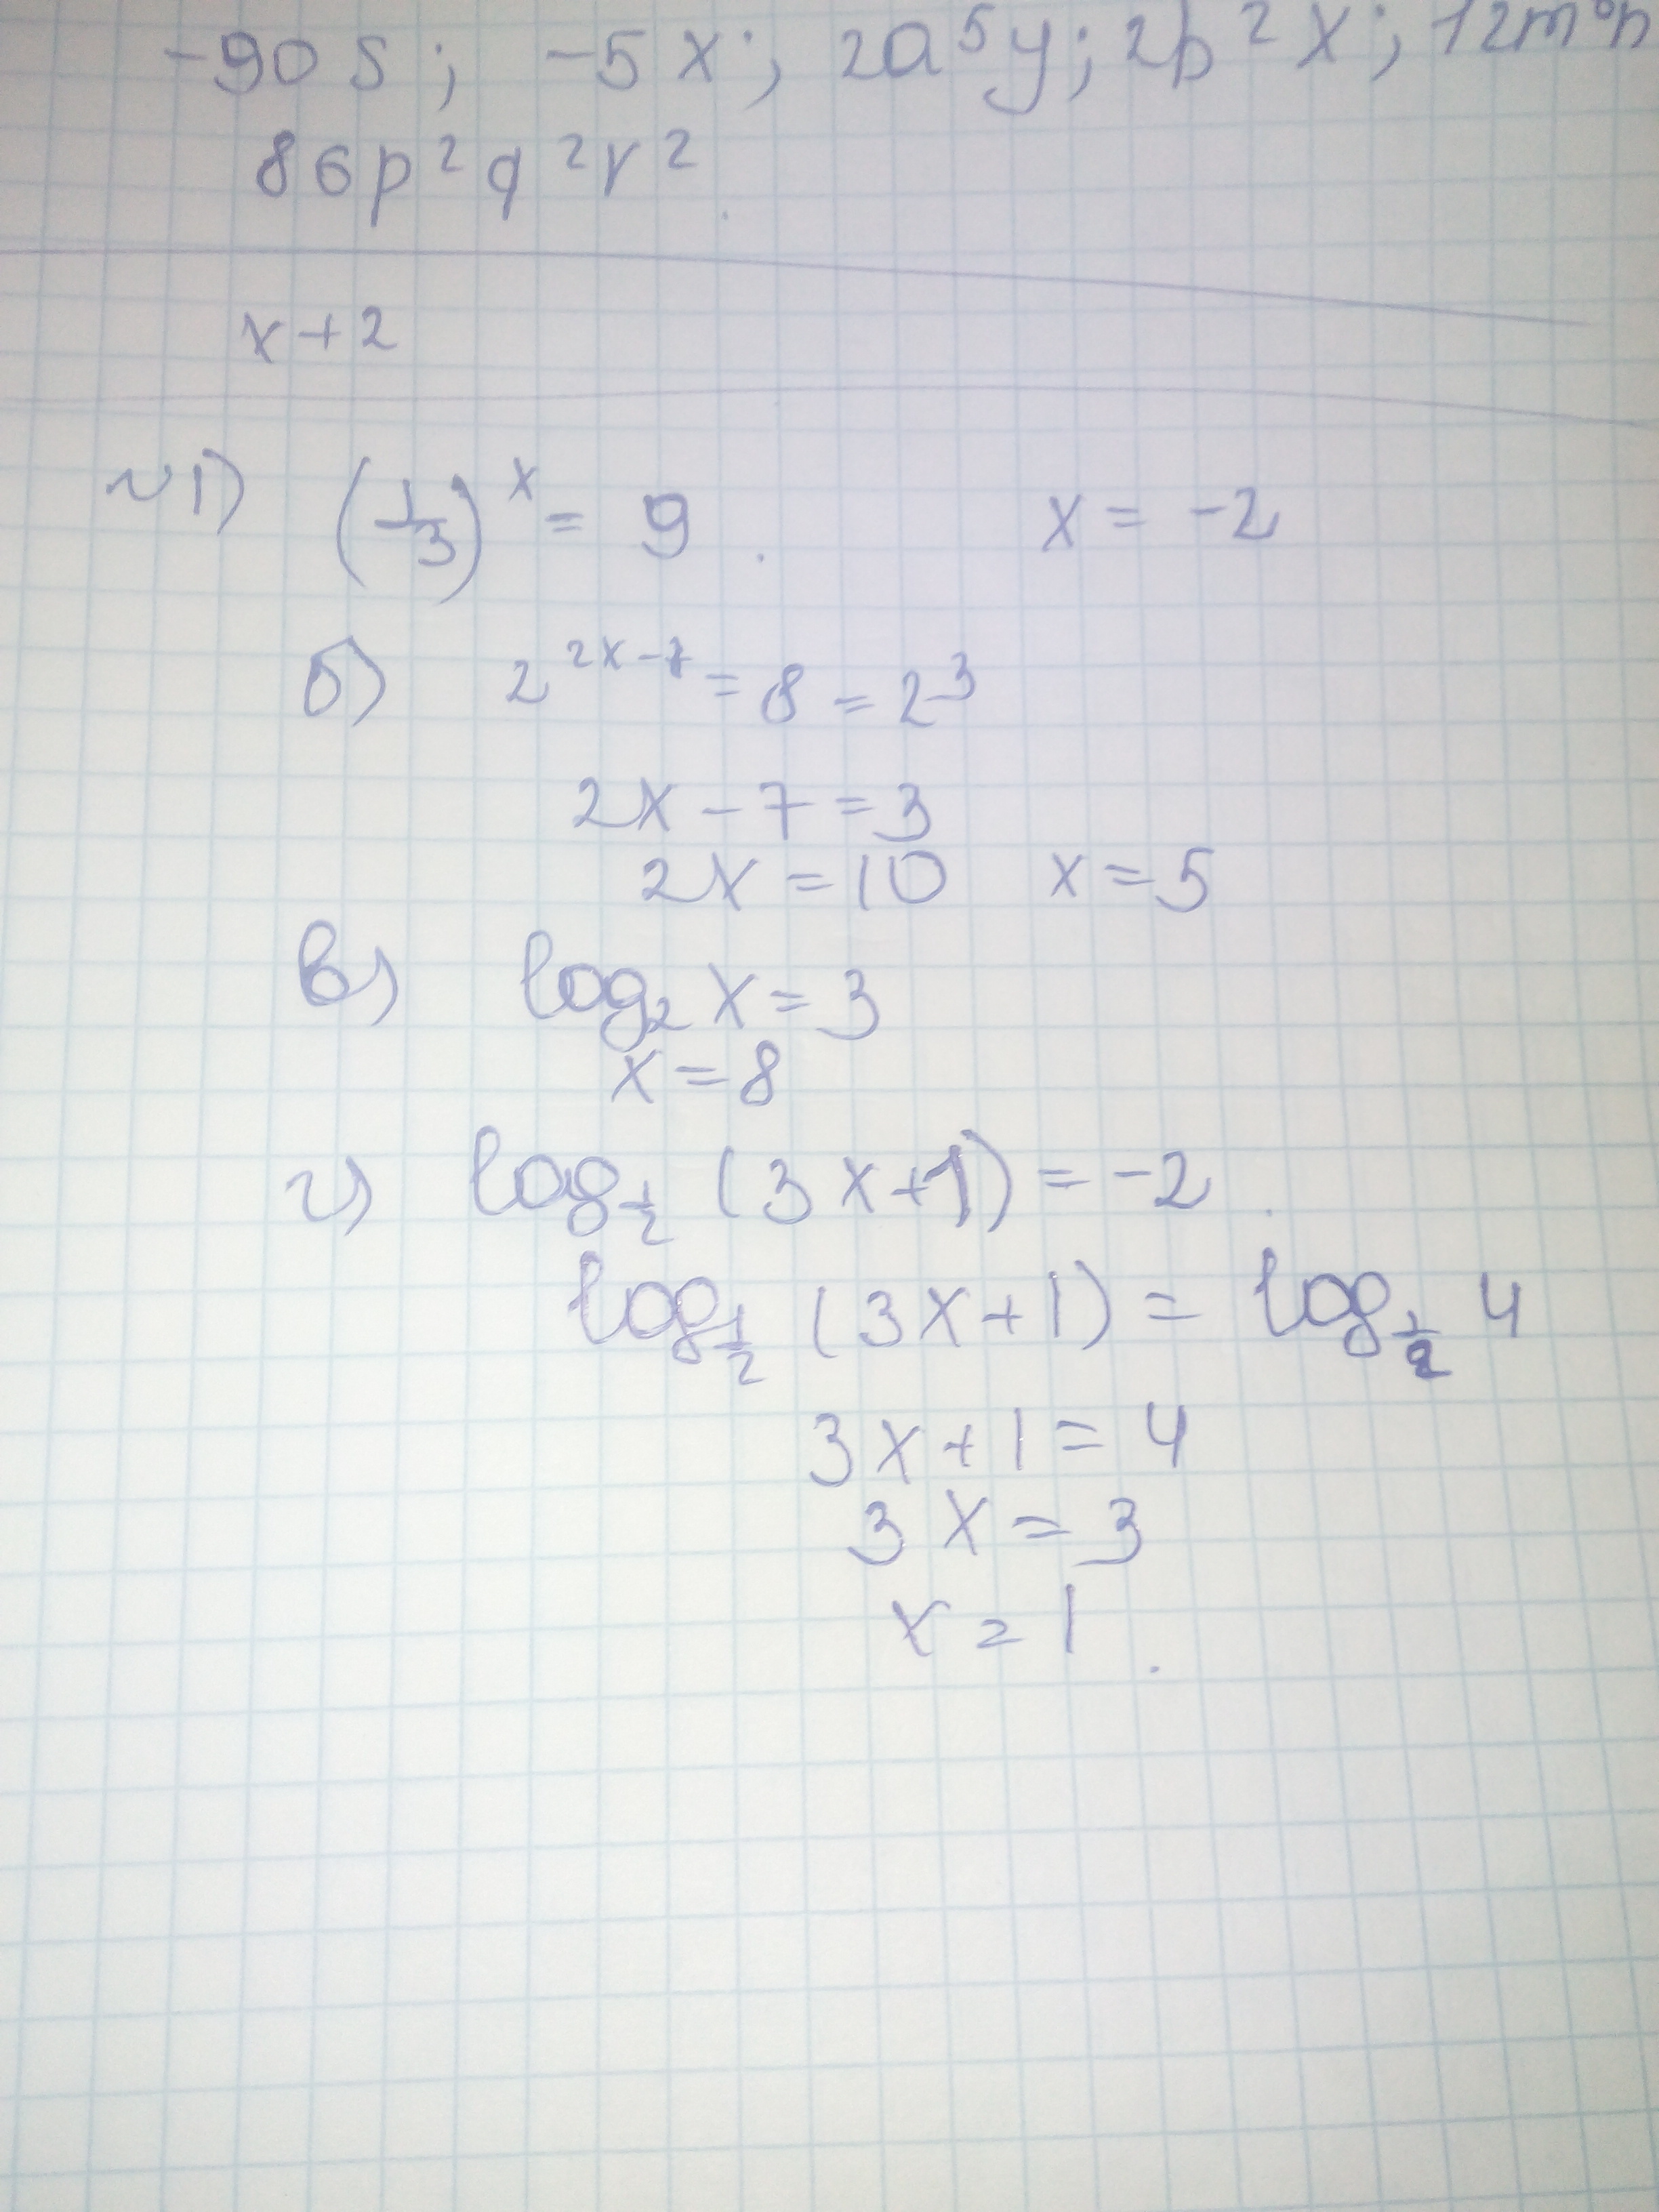 -90s; -5x; 2a⁵y; 2b²x; 12m
86p²q²r²
x+2
N1) (1/3)^x = 9. x = -2
б) 2^(2x-7) = 8 = 2³
2x-7=3
2x=10 x=5
в) log₂ x = 3
x=8
г) log_(1/2) (3x+1) = -2.
log_(1/2) (3x+1) = log_(1/2) 4
3x+1=4
3x=3
x=1.